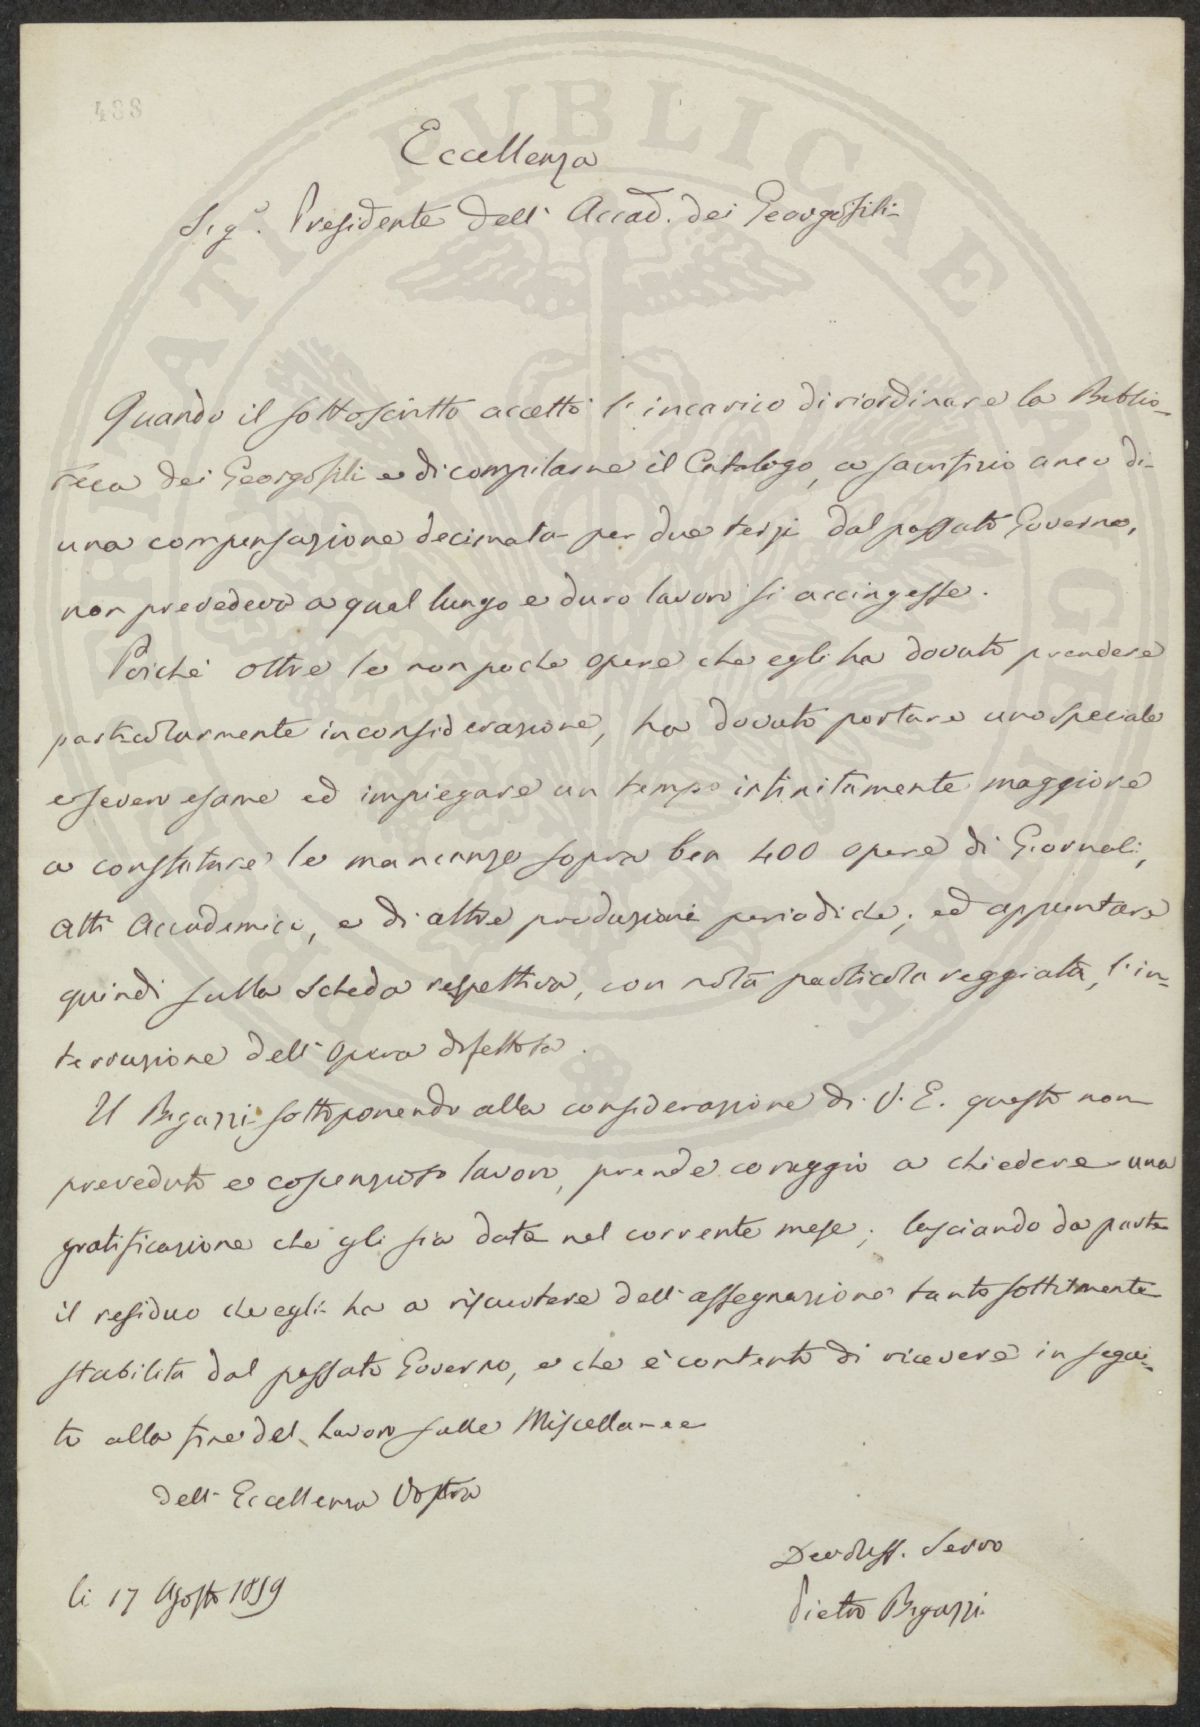 488
Eccellenza
Sig.r Presidente dell' Accad. dei Georgofili
Quando il sottoscritto accettò l'incarico di riordinare la Biblio-
teca dei Georgofili e di compilarne il Catalogo, a sacrifizio anco di
una compensazione decimata per due terzi dal passato Governo,
non prevedeva a qual lungo e duro lavoro si accingesse.
Poichè oltre le non poche opere che egli ha dovuto prendere
particolarmente in considerazione, ha dovuto portare uno speciale
e severo esame ed impiegare un tempo infinitamente maggiore
a constatare le mancanze sopra ben 400 opere di Giornali,
Atti Accademici, e di altre produzioni periodiche; ed appuntare
quindi sulla scheda respettiva, con nota particolareggiata, l'in-
terruzione dell' Opera difettosa.
Il Bigazzi sottoponendo alla considerazione di V. E. questo non
preveduto e coscenzioso lavoro, prende coraggio a chiedere una
gratificazione che gli sia data nel corrente mese; lasciando da parte
il residuo che egli ha a riscuotere dell' assegnazione tanto sottilmente
stabilita dal passato Governo, e che è contento di ricevere in segui-
to alla fine del lavoro sulle Miscellanee
Dell' Eccellenza Vostra
Devotiss. Servo
li 17 Agosto 1859
Pietro Bigazzi
PUBLICAE